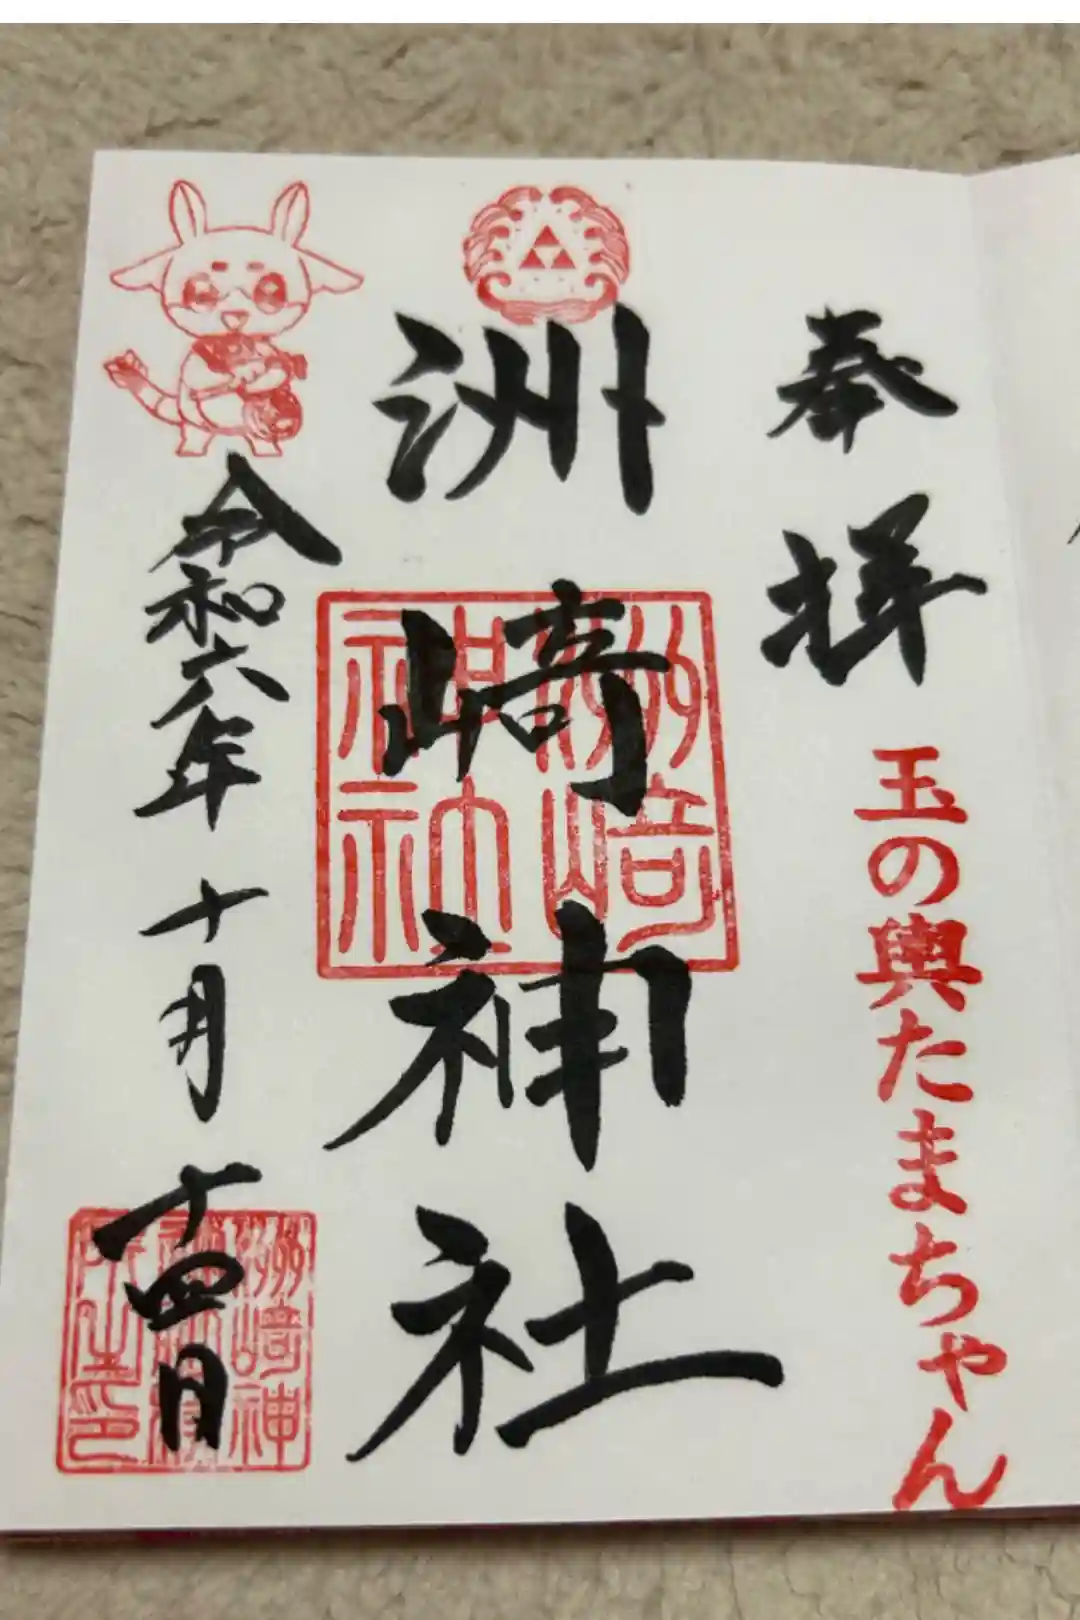 奉拝
玉の輿たまちゃん
洲崎神社
洲﨑神社
令和六年十月十四日
洲﨑神